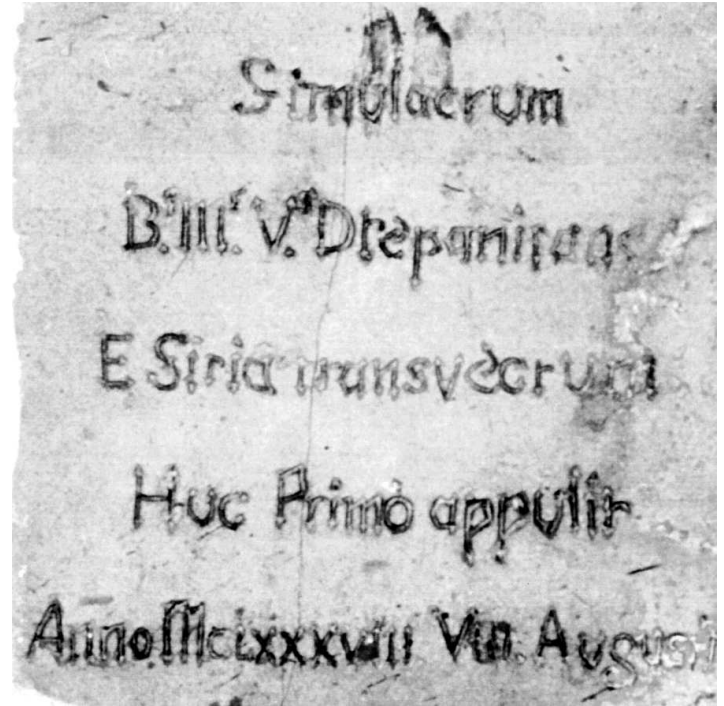 Simulacrum
B.ᵃᵉ M.ᵃᵉ V.ⁱˢ Drepanitanae
E Siria transvectum
Huc Primò appulit
Anno. MCLXXXVIII VIII. Augusti